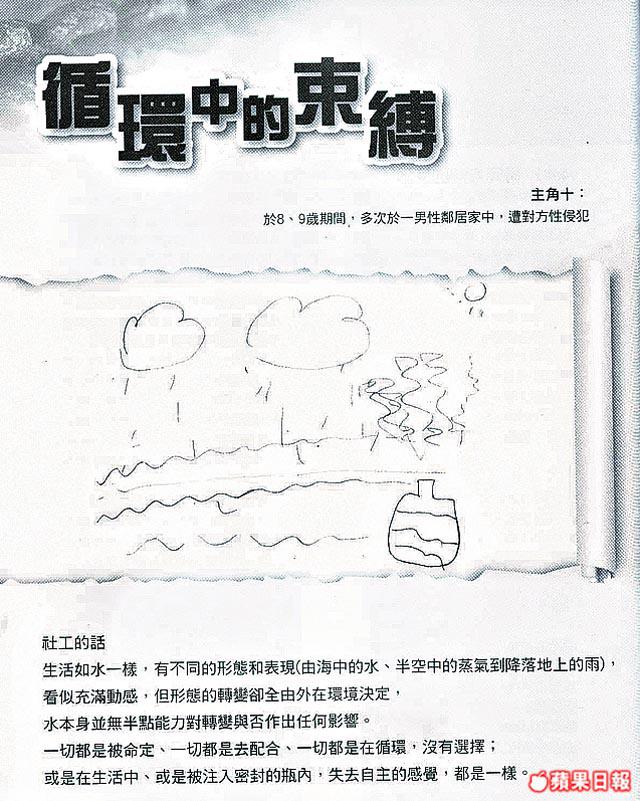 循環中的束縛
主角十：
於8、9歲期間，多次於一男性鄰居家中，遭對方性侵犯
社工的話
生活如水一樣，有不同的形態和表現(由海中的水、半空中的蒸氣到降落地上的雨)，
看似充滿動感，但形態的轉變卻全由外在環境決定，
水本身並無半點能力對轉變與否作出任何影響。
一切都是被命定、一切都是去配合、一切都是在循環，沒有選擇；
或是在生活中、或是被注入密封的瓶內，失去自主的感覺，都是一樣。
蘋果日報